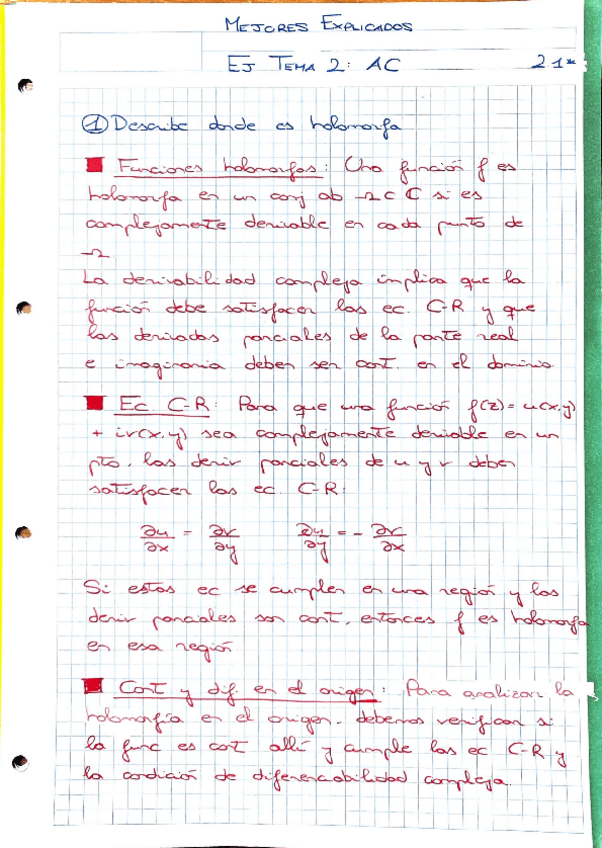 MEJORES EXPLICADOS
EJ TEMA 2: AC
① Describe donde es holomorfa
Funciones holomorfas: Una función f es
holomorfa en un conj ab Ω ⊂ ℂ si es
complejamente derivable en cada punto de
Ω
La derivabilidad compleja implica que la
función debe satisfacer las ec. C-R y que
las derivadas parciales de la parte real
e imaginaria deben ser cont. en el dominio
Ec C-R: Para que una función f(z) = u(x,y)
+ iv(x,y) sea complejamente derivable en un
pto, las deriv parciales de u y v deben
satisfacer las ec. C-R:
∂u/∂x = ∂v/∂y ∂u/∂y = - ∂v/∂x
Si estas ec se cumplen en una región y las
deriv parciales son cont, entonces f es holomorfa
en esa región
Cont y dif. en el origen: Para analizar la
holomorfia en el origen, debemos verificar si
la func es cont allí y cumple las ec C-R y
la condición de diferenciabilidad compleja.